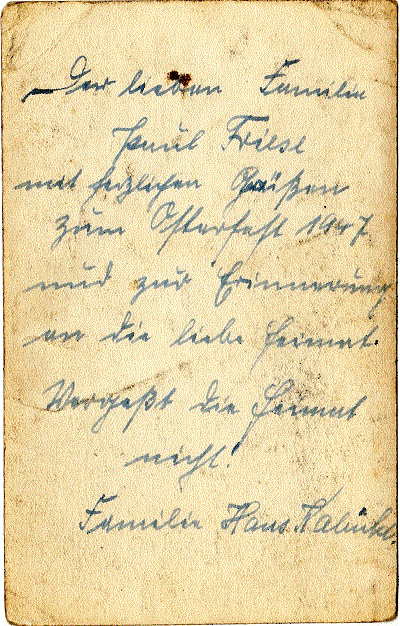 Der lieben Familie
Paul Friese
mit herzlichen Grüßen
zum Osterfest 1947
und zur Erinnerung
an die liebe Heimat.
Vergeßt die Heimat
nicht!
Familie Hans